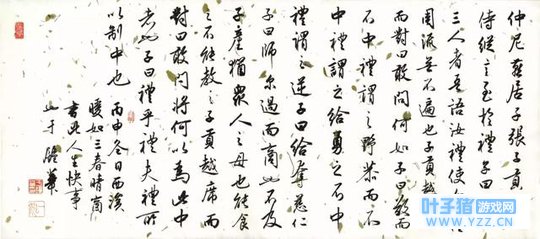 仲尼燕居子張子貢
侍縱言至於禮子曰
三人者吾語汝禮使女
周流無不遍也子貢越
而對曰敢問何如子曰敬而
不中禮謂之野恭而不
中禮謂之給勇而不中
禮謂之逆子曰給奪慈仁
子曰師爾過而商也不及
子產猶眾人之母也能食
之不能教之子貢越席而
對曰敢問將何以為此中
者也子曰禮乎禮夫禮所
以制中也 丙申冬日西溪
暖如三春晴窗
書此人生快事
叶子猪游戏网